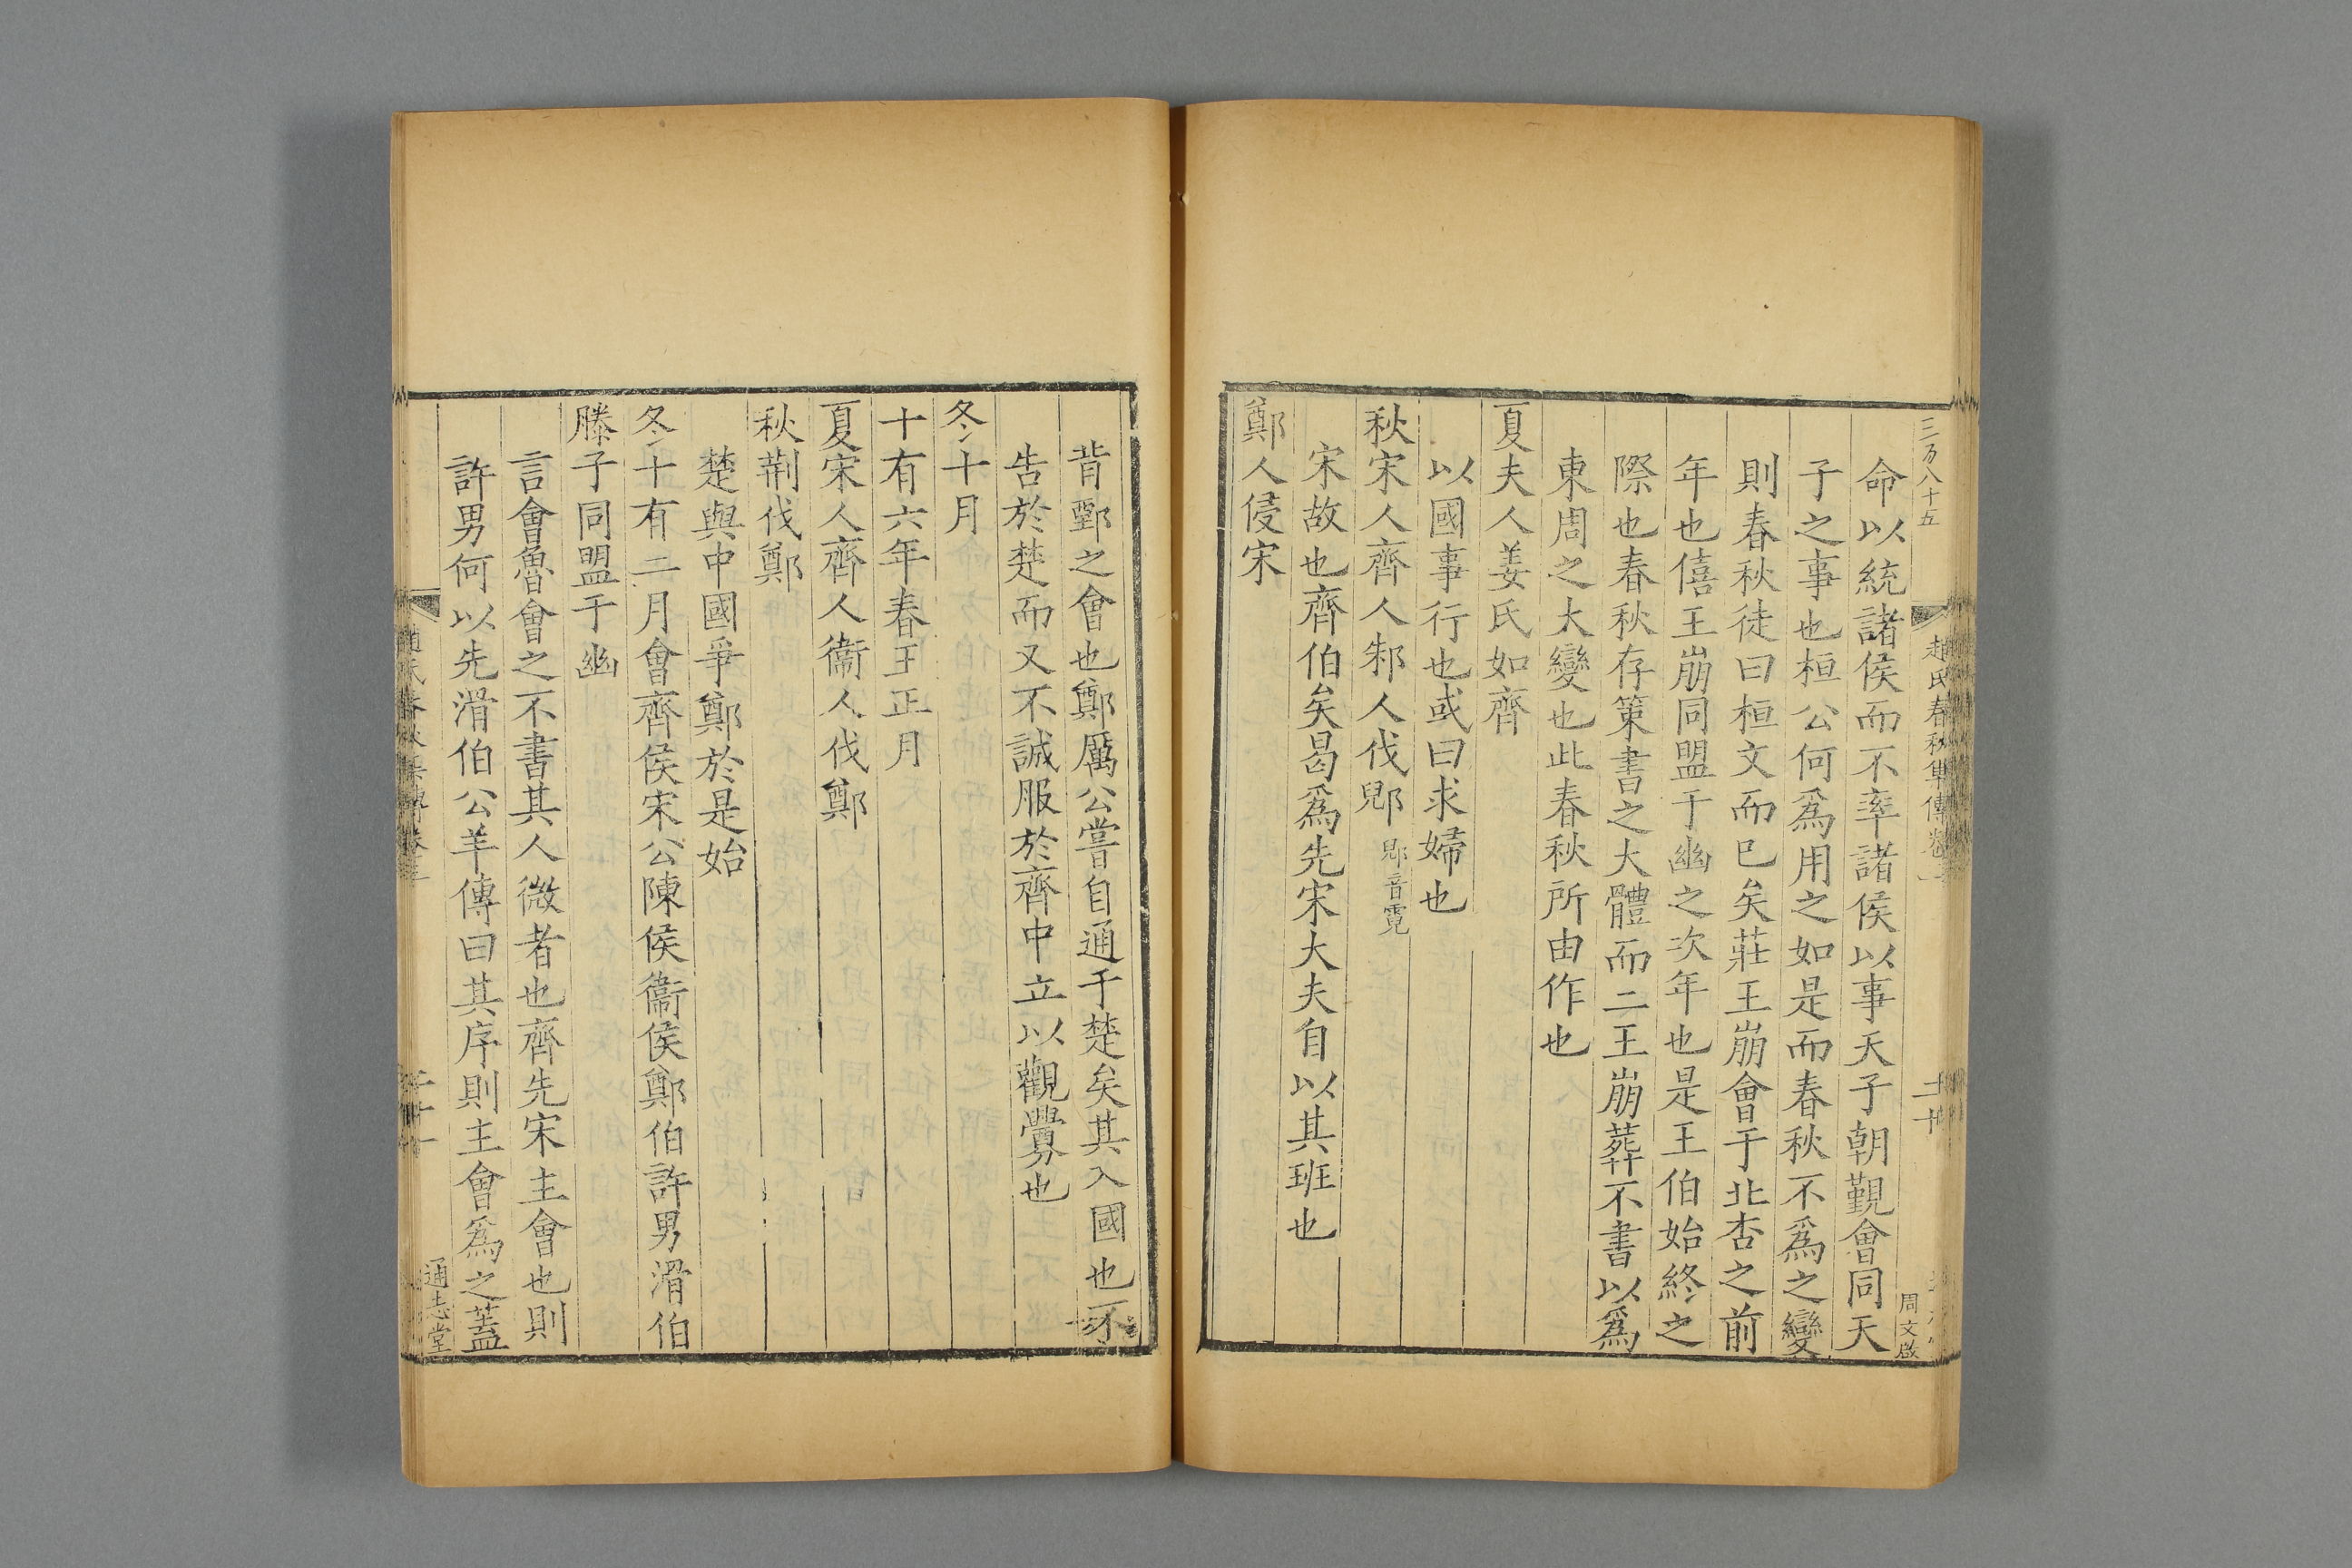 三万八十五
趙氏春秋集傳卷三
二十
周文啟
命以統諸侯而不率諸侯以事天子朝覲會同天
子之事也桓公何爲用之如是而春秋不爲之變
則春秋徒曰桓文而已矣莊王崩會于北杏之前
年也僖王崩同盟于幽之次年也是王伯始終之
際也春秋存策書之大體而二王崩葬不書以爲
東周之大變也此春秋所由作也
夏夫人姜氏如齊
以國事行也或曰求婦也
秋宋人齊人邾人伐郳 郳音霓
宋故也齊伯矣曷爲先宋大夫自以其班也
鄭人侵宋
背鄄之會也鄭厲公嘗自通于楚矣其入國也不
告於楚而又不誠服於齊中立以觀釁也
冬十月
十有六年春王正月
夏宋人齊人衞人伐鄭
秋荆伐鄭
楚與中國爭鄭於是始
冬十有二月會齊侯宋公陳侯衞侯鄭伯許男滑伯
滕子同盟于幽
言會魯會之不書其人微者也齊先宋主會也則
許男何以先滑伯公羊傳曰其序則主會爲之蓋
趙氏春秋集傳卷三
二十一
通志堂